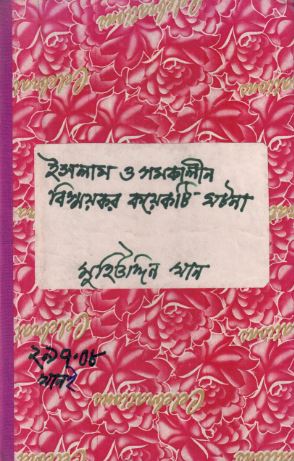 ইসলাম ও সমকালীন
বিস্ময়কর কয়েকটি ঘটনা
মুহিউদ্দিন খান
২৯৭.০৮
Celebrations
Celebrations